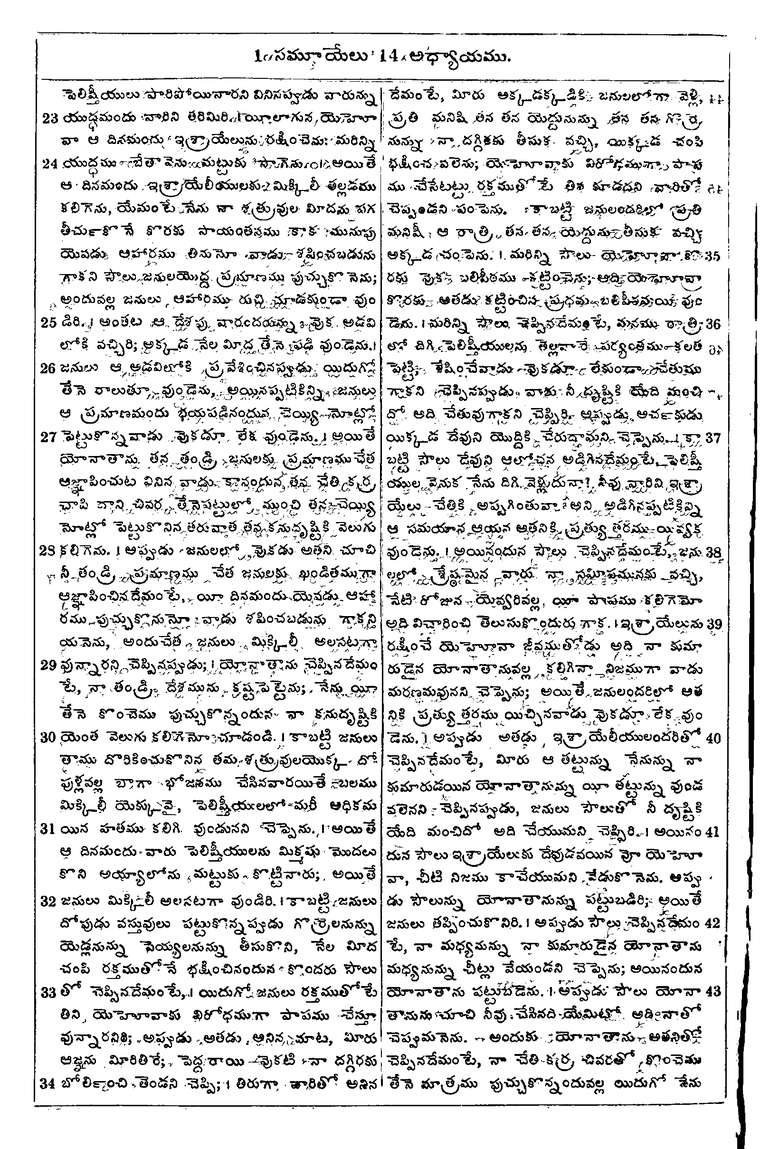 1 సమూయేలు 14 అధ్యాయము.
పెలిష్తీయులు పారిపోయినారని వినినప్పుడు వారున్ను
23 యుద్ధమందు వారిని తరిమిరి. । యీలాగున, యెహో
వా ఆ దినమందు ఇశ్రాయేలును రక్షించెను; మరిన్ని
24 యుద్ధము బేతావెను మట్టుకు సాగెను. । అయితే
ఆ దినమందు ఇశ్రాయేలీయులకు మిక్కిలీ తల్లడము
కలిగెను, యేమంటే నేను నా శత్రువుల మీదను పగ
తీర్చుకొనే కొరకు సాయంతనము కాక మునుపు
యెవడు ఆహారము తినునో వాడు శపించబడును
గాకని సౌలు జనులయొద్ద ప్రమాణము పుచ్చుకొనెను;
అందువల్ల జనులు ఆహారము రుచి చూడకుండా వుం
25 డిరి. । అంతట ఆ దేశపు వారందయున్ను వుక అడవి
లోకి వచ్చిరి; అక్కడ నేల మీద్ద తేనె పడి వుండెను. ।
26 జనులు ఆ అడవిలోకి ప్రవేశించినప్పుడు యిదుగో
తేనె రాలుతూ వుండెను, అయినప్పటికిన్ని జనులు
ఆ ప్రమాణమందు భయపడినందున చెయ్యి నోట్లో
27 పెట్టుకొన్నవాడు వుకడూ లేక వుండెను. । అయితే
యోనాతాను తన తండ్రి జనులకు ప్రమాణముచేత
ఆజ్ఞాపించుట వినిన వాడు కానందున తన చేతి కర్ర
చాపి దాని చివర తేనెపట్టులో ముంచి తన చెయ్యి
నోట్లో పెట్టుకొనిన తరువాత తన కనుదృష్టికి వెలుగు
28 కలిగెను. । అప్పుడు జనులలో వుకడు అతని చూచి
నీ తండ్రి ప్రమాణము చేత జనులకు ఖండితముగా
ఆజ్ఞాపించినదేమంటే, యీ దినమందు యెవడు ఆహా
రము పుచ్చుకొనునో వాడు శపించబడును గాక్కని
యనెను, అందుచేత జనులు మిక్కిలీ అలసటగా
29 వున్నారని చెప్పినప్పుడు; । యోనాతాను చెప్పినదేమం
టే, నా తండ్రి దేశమును కష్టపెట్టెను; నేను యీ
తేనె కొంచెము పుచ్చుకొన్నందున నా కనుదృష్టికి
30 యెంత వెలుగు కలిగెనో చూడండి. । కాబట్టి జనులు
తాము దొరికించుకొనిన తమ శత్రువులయొక్క దో
పుళ్లవల్ల బాగా భోజనము చేసినవారయితే బలము
మిక్కిలీ యెక్కువై, పెలిష్తీయులలో మరీ అధికమ
31 యిన హతము కలిగి వుండునని చెప్పెను. । అయితే
ఆ దినమందు వారు పెలిష్తీయులను మిక్మషు మొదలు
కొని అయ్యాలోను మట్టుకు కొట్టినారు; అయితే
32 జనులు మిక్కిలీ అలసటగా వుండిరి. । కాబట్టి జనులు
దోపుడు వస్తువులు పట్టుకొన్నప్పుడు గొర్రెలనున్ను
యెడ్లనున్ను పెయ్యలనున్ను తీసుకొని, నేల మీద
చంపి రక్తముతోనే భక్షించినందున కొందరు సౌలు
33 తో చెప్పినదేమంటే, । యిదుగో జనులు రక్తముతోటే
తిని, యెహోవాకు విరోధముగా పాపము చేస్తూ
వున్నారనిరి; అప్పుడు అతడు అనిన మాట, మీరు
ఆజ్ఞను మీరితిరి; పెద్ద రాయి వుకటి నా దగ్గిరకు
34 బోర్లించి తెండని చెప్పి; । తిరుగా వారితో అనిన
దేమంటే, మీరు అక్కడక్కడికి జనులలోగా వెళ్లి,
ప్రతి మనిషి తన తన యెద్దునున్ను తన తన గొర్రె
నున్ను నా దగ్గిరకు తీసుక వచ్చి, యిక్కడ చంపి
భక్షించవలెను; యెహోవాకు విరోధముగా పాప
ము చేసేటట్టు రక్తముతోటే తిన కూడదని వారితో
చెప్పండని పంపెను. కాబట్టి జనులందరిలో ప్రతి
మనిషీ ఆ రాత్రి తన తన యెద్దును తీసుకు వచ్చి
అక్కడ చంపెను. । మరిన్ని సౌలు యెహోవా కొ 35
రకు వుక బలిపీఠము కట్టించెను; అది యెహోవా
కొరకు అతడు కట్టించిన ప్రథమ బలిపీఠమయి వుం
డెను. । మరిన్ని సౌలు చెప్పినదేమంటే, మనము రాత్రి 36
లో దిగి పెలిష్తీయులను తెల్లవారే పర్యంతము కలత
పెట్టి, శేషించేవాడు వుకడూ లేకుండా చేతుము
గాకని చెప్పినప్పుడు వారు నీ దృష్టికి యేది మంచి
దో అది చేతువుగాకని చెప్పిరి. అప్పుడు అర్చకుడు
యిక్కడ దేవుని యొద్దికి చేరుదామని చెప్పెను. । కా 37
బట్టి సౌలు దేవుని ఆలోచన అడిగినదేమంటే, పెలిష్తీ
యుల వెనుక నేను దిగి వెళ్లుదునా? నీవు వారిని ఇశ్రా
యేలు చేతికి అప్పగింతువా? అని అడిగినప్పటికిన్ని
ఆ సమయాన ఆయన ఆతనికి ప్రత్యుత్తరము యివ్వక
వుండెను. । అయినందున సౌలు చెప్పినదేమంటే, జను 38
లల్లో శ్రేష్ఠమైన వారు నా సమీపమునకు వచ్చి,
నేటి రోజున యెవ్వరివల్ల, యీ పాపము కలిగెనో
అది విచారించి తెలుసుకొందురు గాక. । ఇశ్రాయేలును 39
రక్షించే యెహోవా జీవముతోడు అది నా కుమా
రుడైన యోనాతానువల్ల కల్గినా నిజముగా వాడు
మరణమవునని చెప్పెను; అయితే జనులందరిలో ఆత
నికి ప్రత్యుత్తరము యిచ్చినవాడు వుకడూ లేక వుం
డెను. । అప్పుడు అతడు ఇశ్రాయేలీయులందరితో 40
చెప్పినదేమంటే, మీరు ఆ తట్టున్ను నేనున్ను నా
కుమారుడయిన యోనాతానున్ను యీ తట్టున్ను వుండ
వలెనని చెప్పినప్పుడు, జనులు సౌలుతో నీ దృష్టికి
యేది మంచిదో అది చేయుమని చెప్పిరి. । అయినం 41
దున సౌలు ఇశ్రాయేలుకు దేవుడవయిన వో యెహో
వా, చీటి నిజము కాచేయుమని వేడుకొనెను. అప్పు
డు సౌలున్ను యోనాతానున్ను పట్టుబడిరి; అయితే
జనులు తప్పించుకొనిరి. । అప్పుడు సౌలు చెప్పినదేమం 42
టే, నా మధ్యమున్ను నా కుమారుడైన యోనాతాను
మధ్యనున్ను చీట్లు వేయండని చెప్పెను; అయినందున
యోనాతాను పట్టుబడెను. । అప్పుడు సౌలు యోనా 43
తానును చూచి నీవు చేసినది యేమిట్లో అది నాతో
చెప్పుమనెను. అందుకు యోనాతాను అతనితో
చెప్పినదేమంటే, నా చేతి కర్ర చివరతో కొంచెము
తేనె మాత్రము పుచ్చుకొన్నందువల్ల యిదుగో నేను